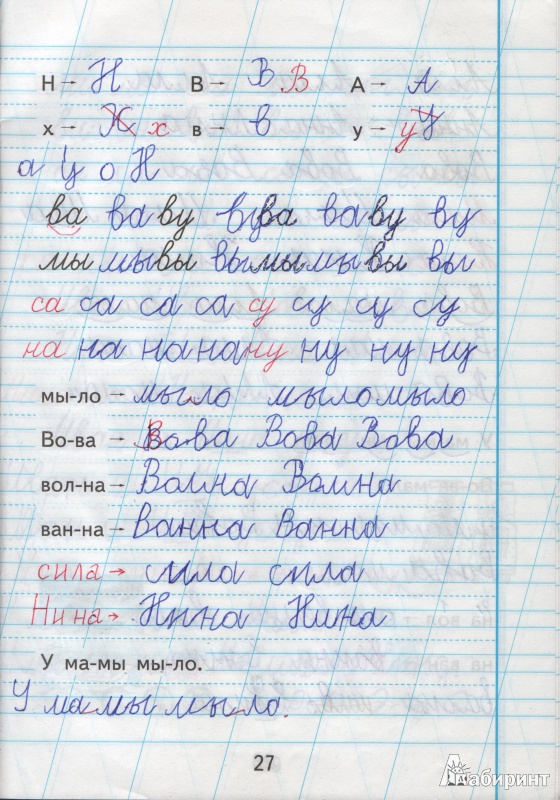 Н → Н В → В В А → А
х → Х х в → в у → у У
а У о Н
ва ва ву ву ва ва ву ву
мы мы вы вы мы мы вы вы
са са са са су су су су
на на на на ну ну ну ну
мы-ло → мыло мыло мыло
Во-ва → Вова Вова Вова
вол-на → Волна Волна
ван-на → Ванна Ванна
сила → сила сила
Нина → Нина Нина
У ма-мы мы-ло.
У мамы мыло.
27
Лабиринт